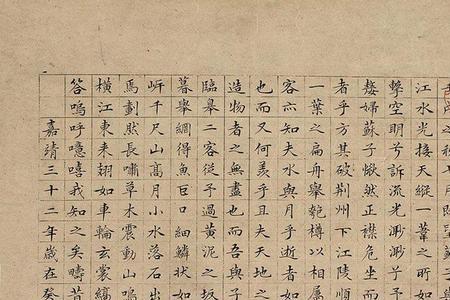 江水光接天縱一葦之所如
擊空明兮訴流光渺渺兮予
嫠婦蘇子愀然正襟危坐而
者乎方其破荊州下江陵順
一葉之扁舟舉匏樽以相屬
客亦知夫水與月乎逝者如
也而又何羨乎且夫天地之
造物者之無盡也而吾與子
臨皋二客從予過黃泥之坂
暮舉網得魚巨口細鱗狀如
岸千尺山高月小水落石出
焉劃然長嘯草木震動山鳴
橫江東來翅如車輪玄裳縞
答嗚呼噫嘻我知之矣疇昔
嘉靖三十二年歲在癸